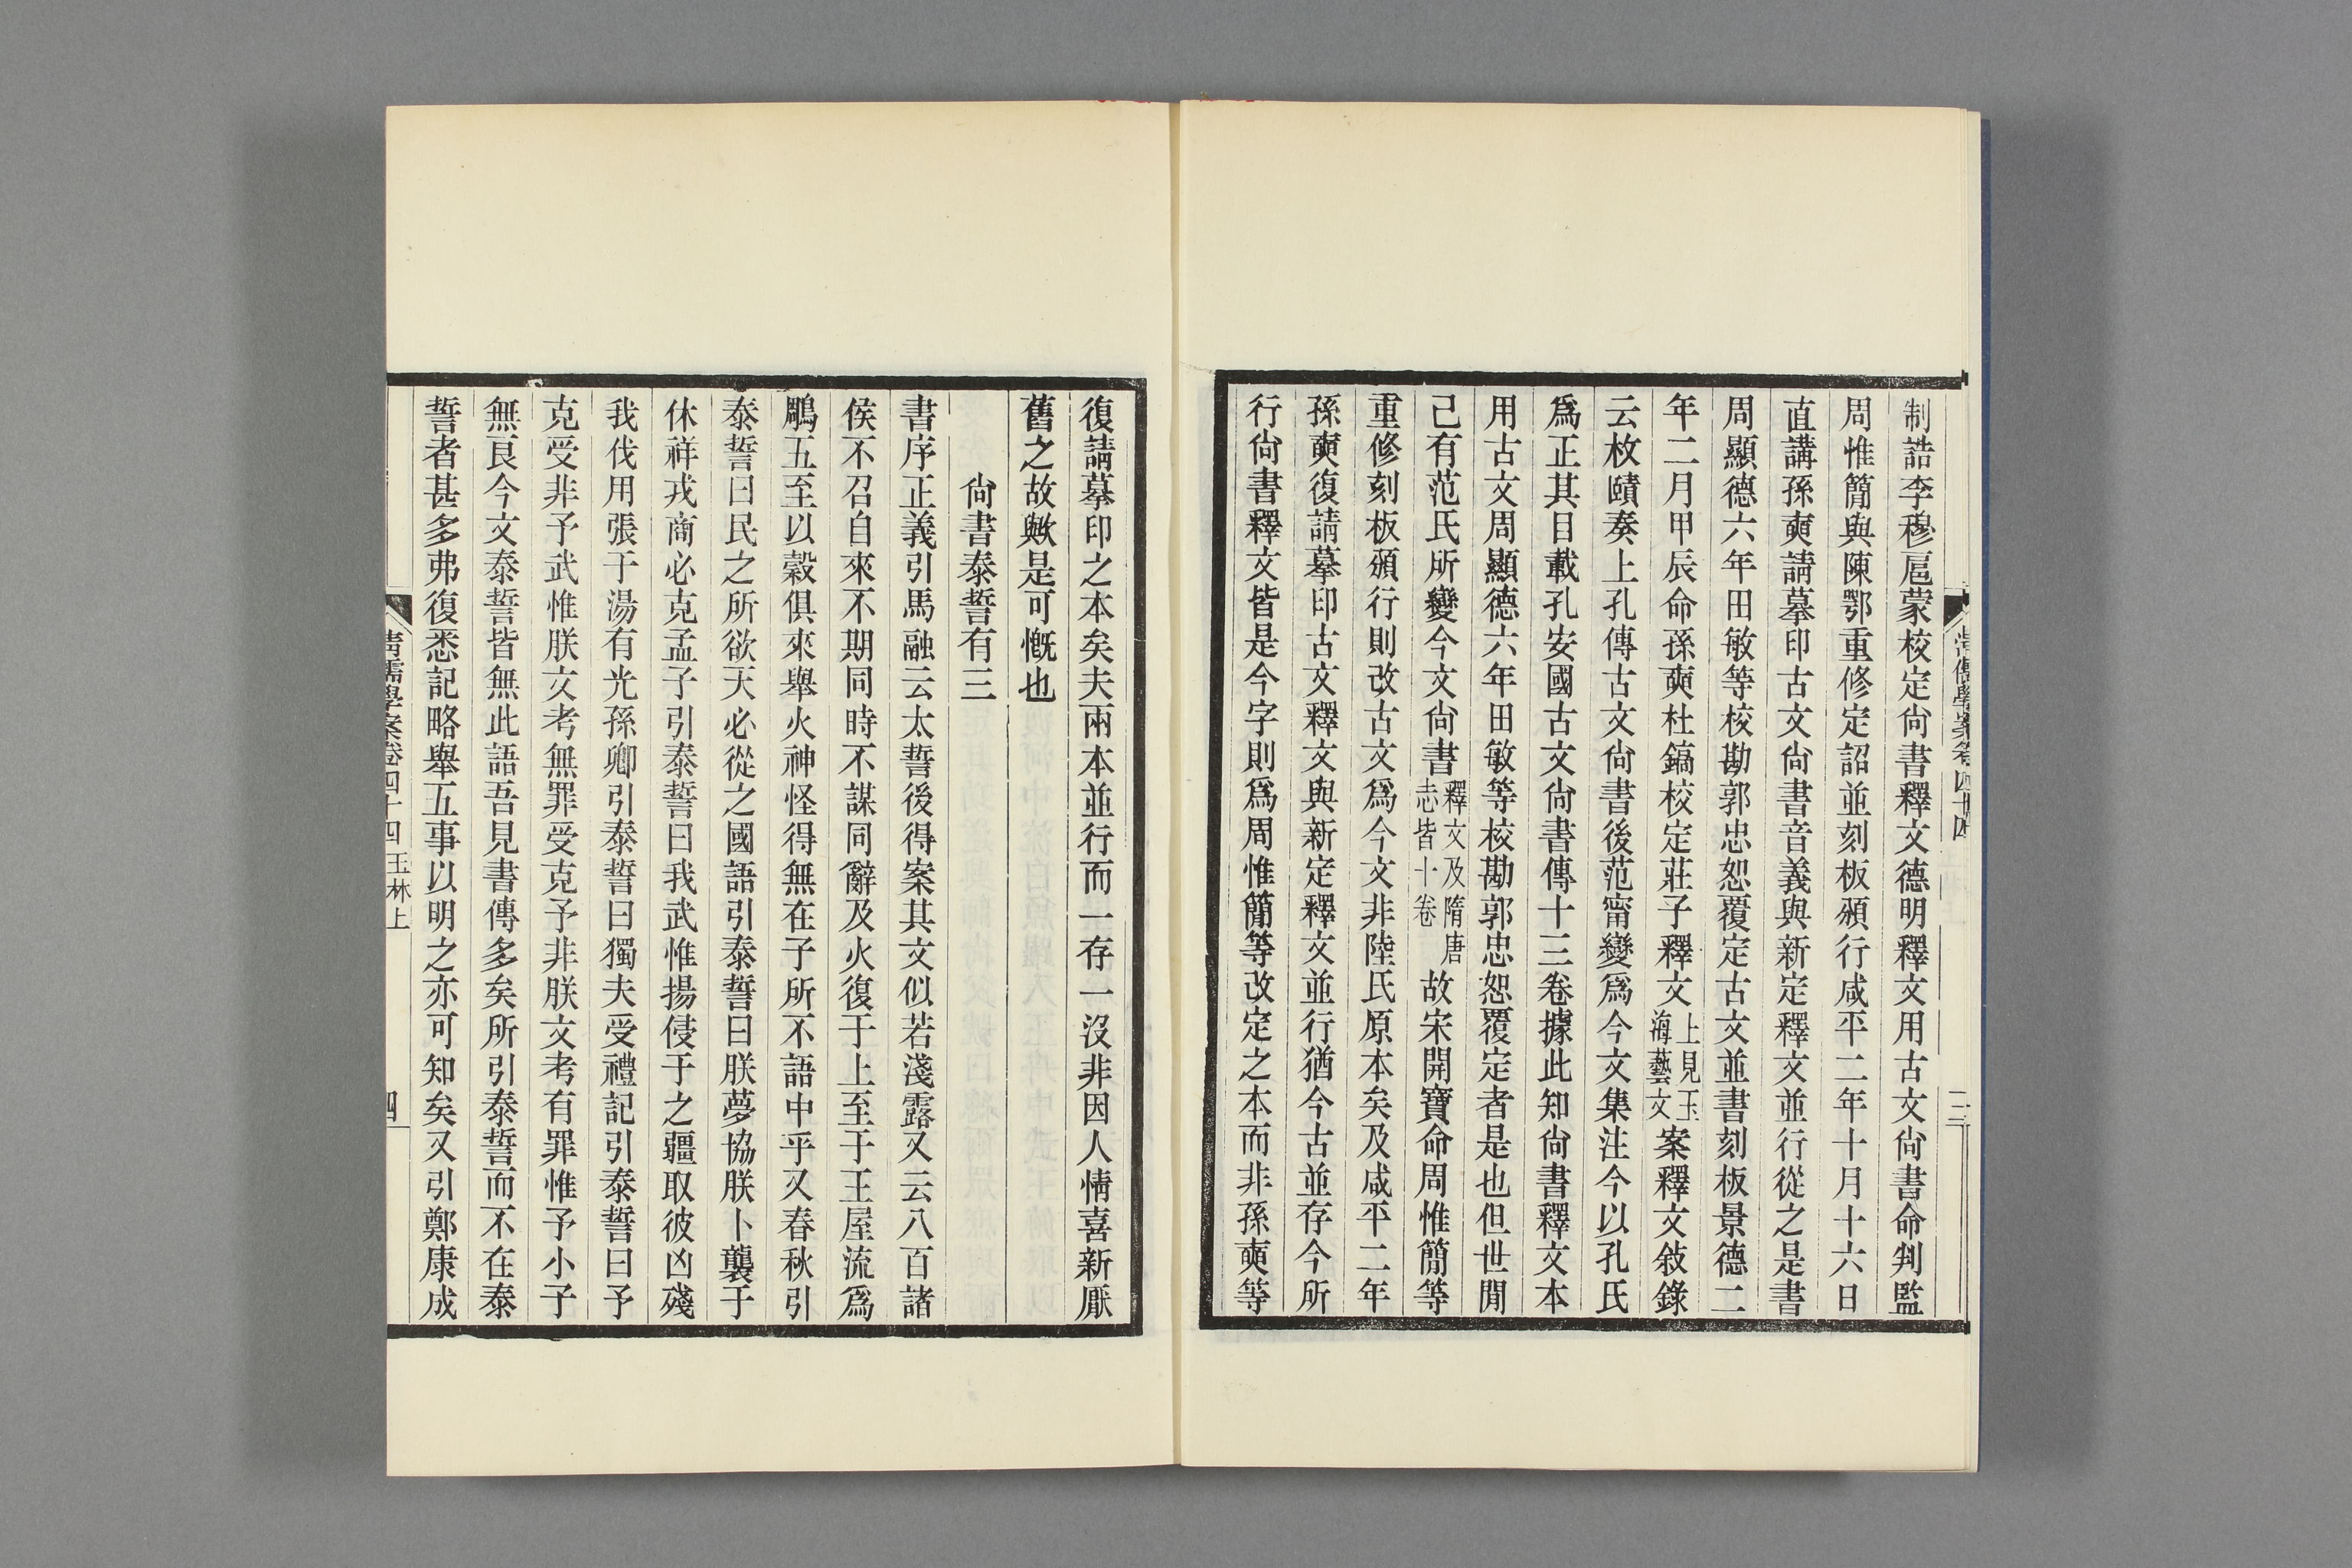 清儒學案卷四十四
三
制誥李穆扈蒙校定尙書釋文德明釋文用古文尙書命判監
周惟簡與陳鄂重修定詔並刻板頒行咸平二年十月十六日
直講孫奭請摹印古文尙書音義與新定釋文並行從之是書
周顯德六年田敏等校勘郭忠恕覆定古文並書刻板景德二
年二月甲辰命孫奭杜鎬校定莊子釋文上見玉海藝文案釋文敍錄
云枚賾奏上孔傳古文尙書後范甯變爲今文集注今以孔氏
爲正其目載孔安國古文尙書傳十三卷據此知尙書釋文本
用古文周顯德六年田敏等校勘郭忠恕覆定者是也但世閒
己有范氏所變今文尙書釋文及隋唐志皆十卷故宋開寶命周惟簡等
重修刻板頒行則改古文爲今文非陸氏原本矣及咸平二年
孫奭復請摹印古文釋文與新定釋文並行猶今古並存今所
行尙書釋文皆是今字則爲周惟簡等改定之本而非孫奭等
復請摹印之本矣夫兩本並行而一存一沒非因人情喜新厭
舊之故歟是可慨也
尙書泰誓有三
書序正義引馬融云太誓後得案其文似若淺露又云八百諸
侯不召自來不期同時不謀同辭及火復于上至于王屋流爲
鵰五至以穀俱來舉火神怪得無在子所不語中乎又春秋引
泰誓曰民之所欲天必從之國語引泰誓曰朕夢協朕卜襲于
休祥戎商必克孟子引泰誓曰我武惟揚侵于之疆取彼凶殘
我伐用張于湯有光孫卿引泰誓曰獨夫受禮記引泰誓曰予
克受非予武惟朕文考無罪受克予非朕文考有罪惟予小子
無良今文泰誓皆無此語吾見書傳多矣所引泰誓而不在泰
誓者甚多弗復悉記略舉五事以明之亦可知矣又引鄭康成
清儒學案卷四十四 玉林上
四